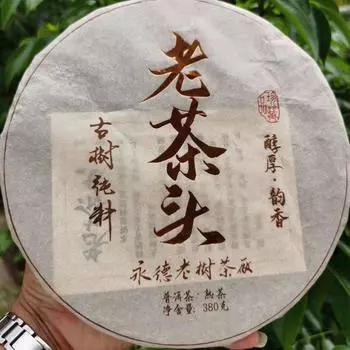 老茶头
古树纯料
醇厚·韵香
永德老树茶厰
普洱茶·熟茶
净含量: 380克